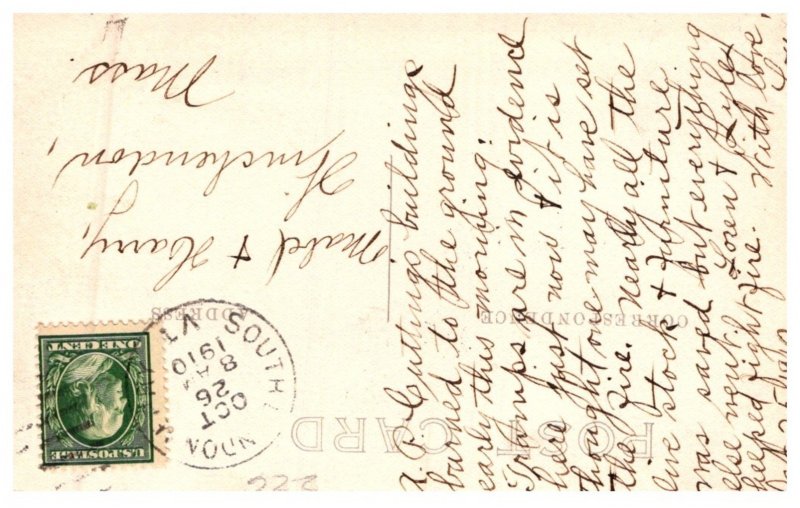 POST CARD
CORRESPONDENCE
ADDRESS
SOUTH
VT
OCT
26
8 A
1910
U.S. POSTAGE
ONE CENT
Mabel & Harry,
Winchendon,
Mass.
Cuttings buildings
burned to the ground
early this morning.
Tramps are in evidence
here just now & it is
thought one may have set
the fire. Nearly all the
live stock & furniture
was saved but everything
else went. Loren &
helped fight fire. With love,
222